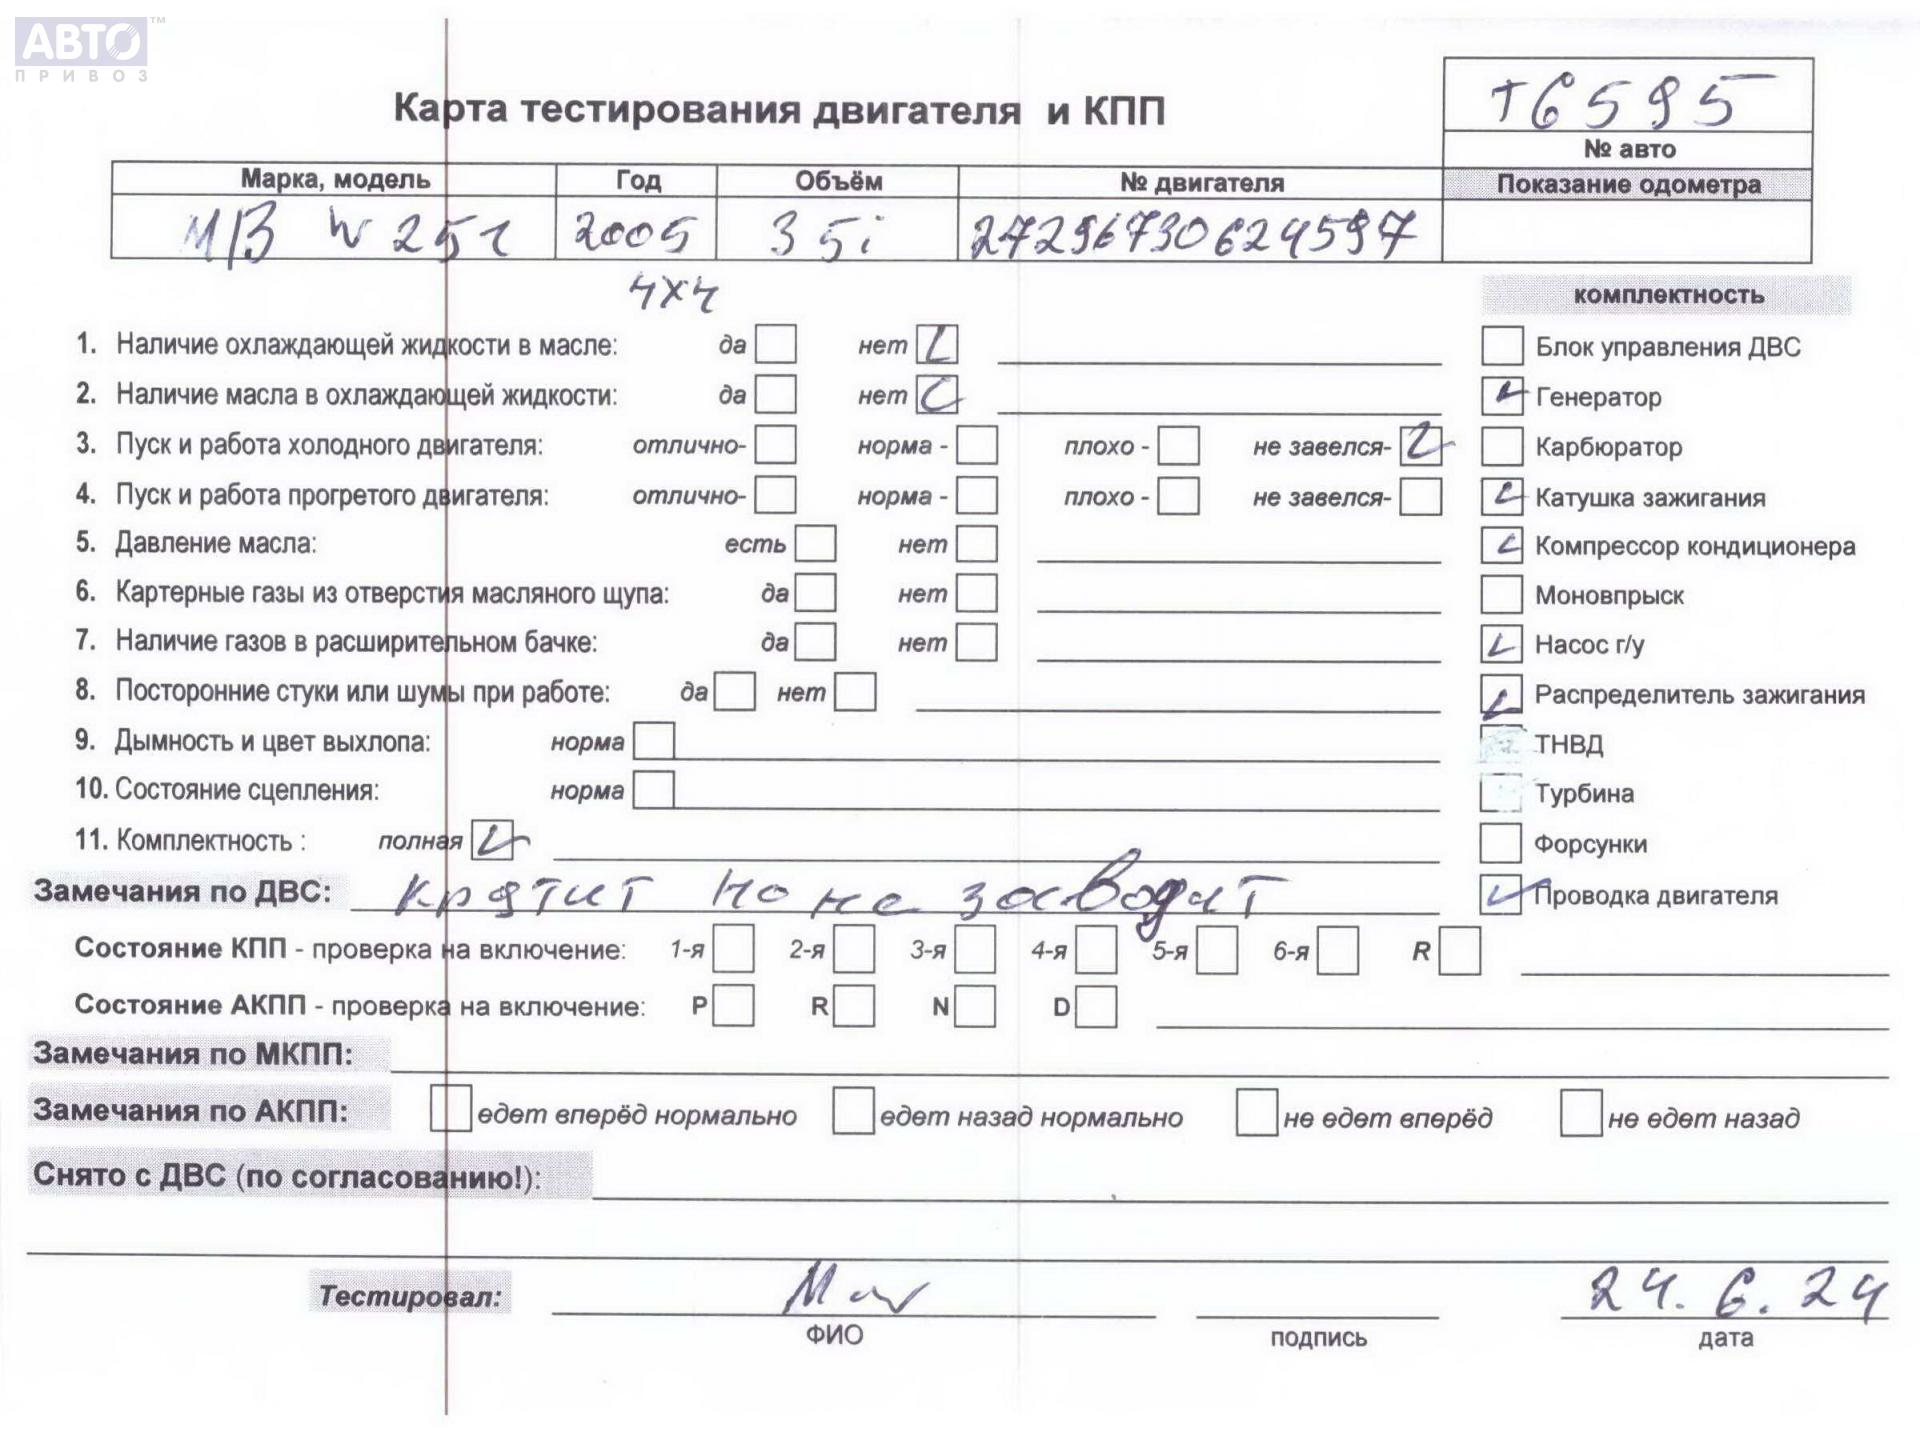 АВТО™
ПРИВОЗ
Карта тестирования двигателя и КПП
т6595
№ авто
Марка, модель Год Объём № двигателя Показание одометра
МВ W251 2005 35i 27296730624597
4x4
комплектность
1. Наличие охлаждающей жидкости в масле: да нет
Блок управления ДВС
2. Наличие масла в охлаждающей жидкости: да нет
Генератор
3. Пуск и работа холодного двигателя: отлично- норма - плохо - не завелся-
Карбюратор
4. Пуск и работа прогретого двигателя: отлично- норма - плохо - не завелся-
Катушка зажигания
5. Давление масла: есть нет
Компрессор кондиционера
6. Картерные газы из отверстия масляного щупа: да нет
Моновпрыск
7. Наличие газов в расширительном бачке: да нет
Насос г/у
8. Посторонние стуки или шумы при работе: да нет
Распределитель зажигания
9. Дымность и цвет выхлопа: норма
ТНВД
10. Состояние сцепления: норма
Турбина
11. Комплектность : полная
Форсунки
Замечания по ДВС: крятит но не заводит
Проводка двигателя
Состояние КПП - проверка на включение: 1-я 2-я 3-я 4-я 5-я 6-я R
Состояние АКПП - проверка на включение: P R N D
Замечания по МКПП:
Замечания по АКПП: едет вперёд нормально едет назад нормально не едет вперёд не едет назад
Снято с ДВС (по согласованию!):
Тестировал: 24.6.24
ФИО подпись дата